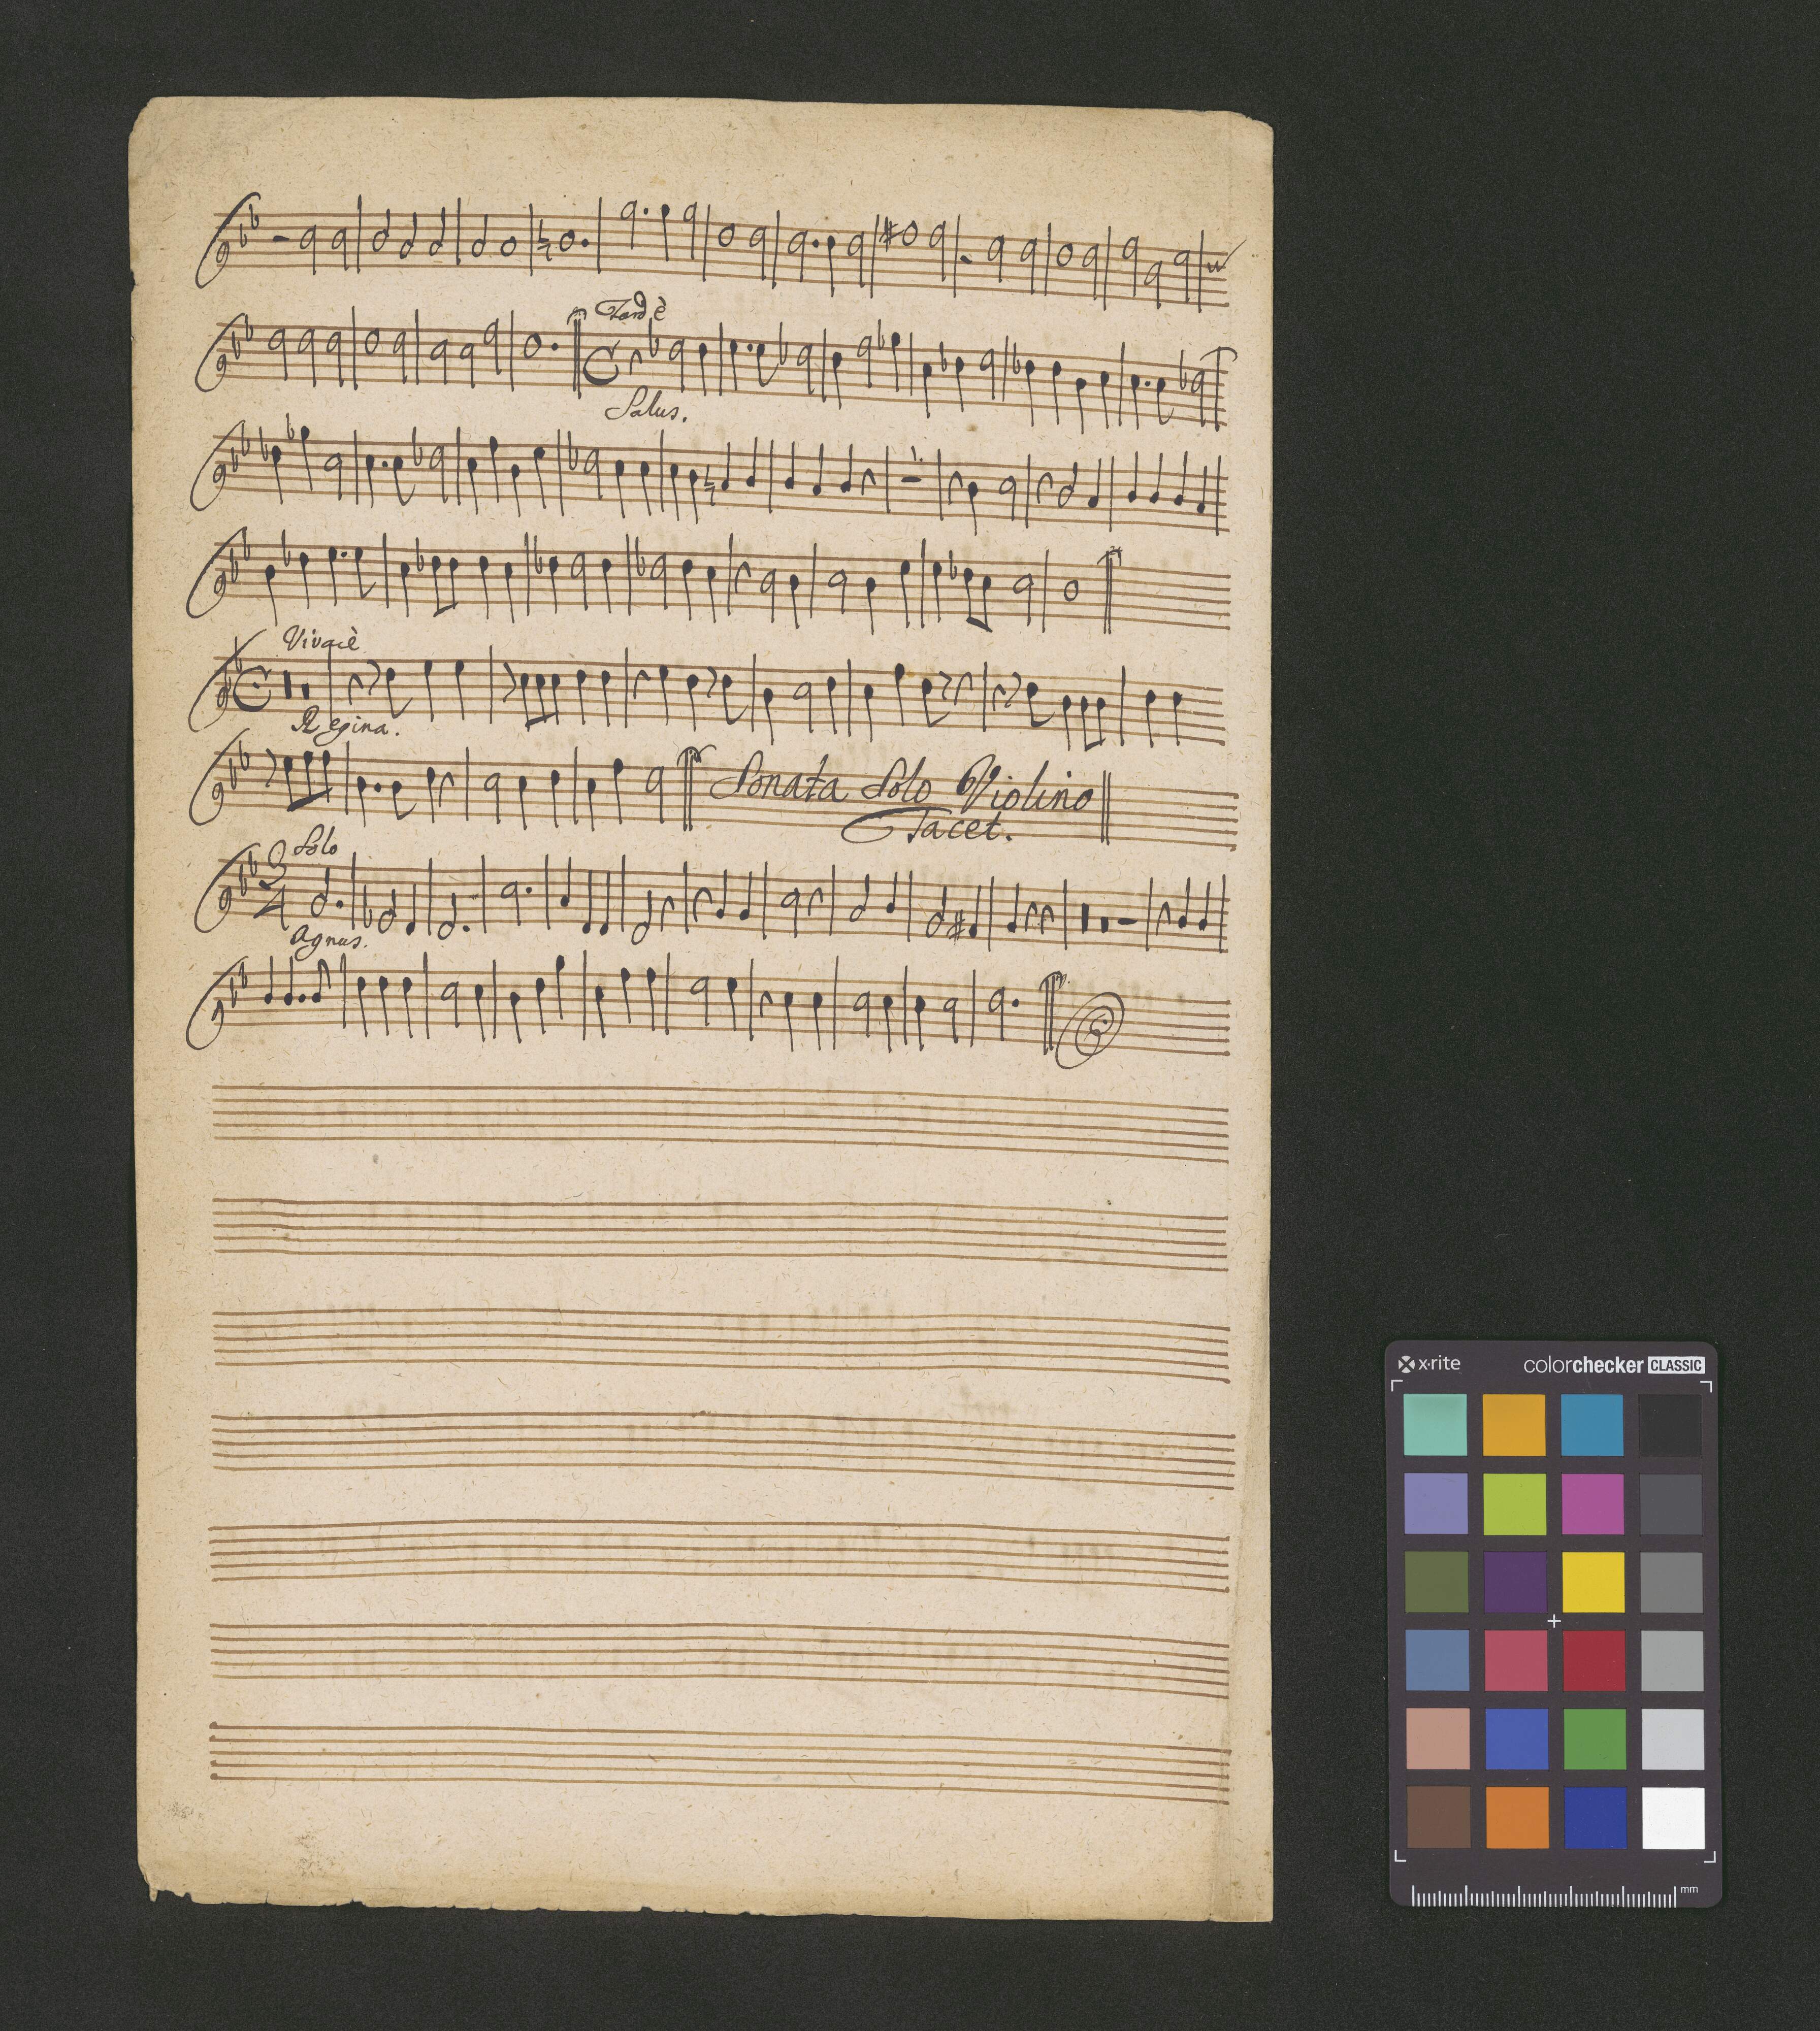 Tardè
Salus.
Vivacè
Regina.
Sonata Solo Violino
Tacet.
Solo
Agnus.
x·rite colorchecker CLASSIC
mm